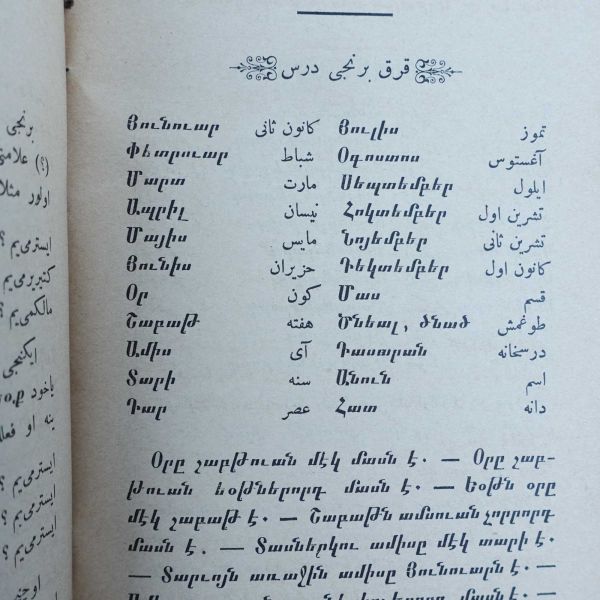 قرق برنجی درس
Յունուար کانون ثانی Յուլիս تموز
Փետրուար شباط Օգոստոս آغستوس
Մարտ مارت Սեպտեմբեր ایلول
Ապրիլ نیسان Հոկտեմբեր تشرین اول
Մայիս مایس Նոյեմբեր تشرین ثانی
Յունիս حزیران Դեկտեմբեր کانون اول
Օր کون Մաս قسم
Շաբաթ هفته Ծնեալ, ծնած طوغمش
Ամիս آی Դասարան درسخانه
Տարի سنه Անուն اسم
Դար عصر Հատ دانه
Օրը շաբթուան մէկ մասն է. — Օրը շաբ-
թուան եօթներորդ մասն է. — Եօթն օրը
մէկ շաբաթ է. — Շաբաթն ամսուան չորրորդ
մասն է. — Տասներկու ամիսը մէկ տարի է.
— Տարւոյն առաջին ամիսը Յունուարն է. —
برنجی
(؟)
اولور مثلا
ایسترمی‌یم ؟
کتیریرمی‌یم ؟
مالکمی‌یم ؟
ایکنجی
یاخود
ینه او فعل
ایسترمی‌یم ؟
ایسترمی‌یم ؟
ایسترمی‌یم ؟